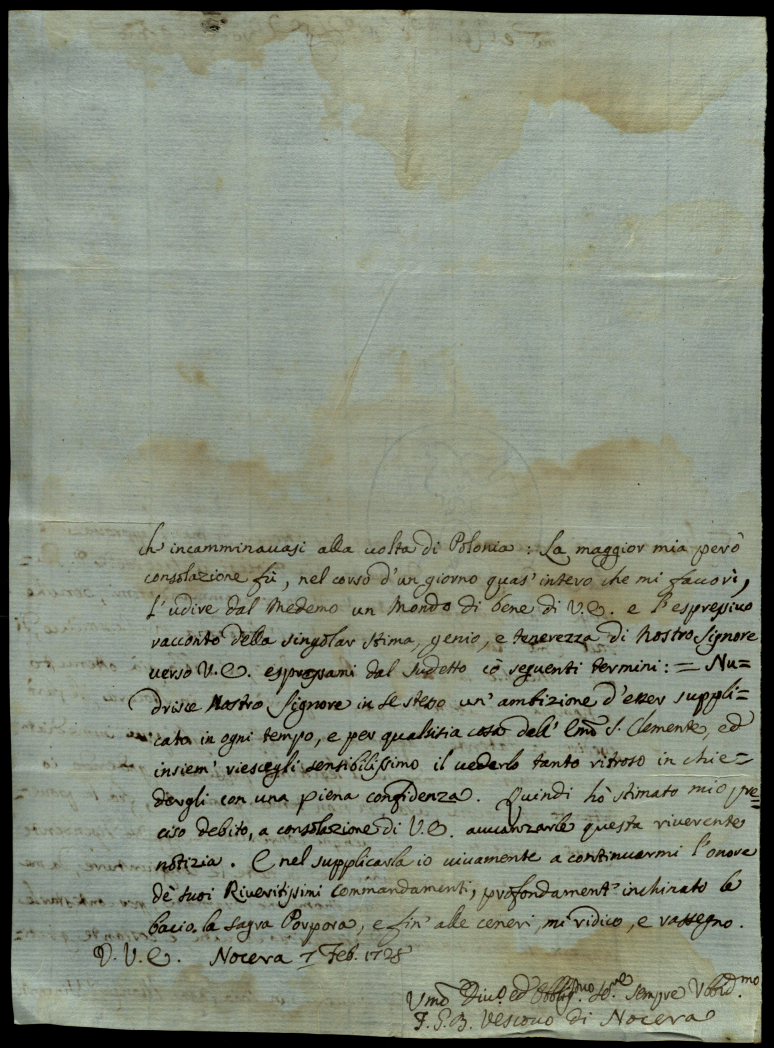 ch' incamminavasi alla volta di Polonia : La maggior mia però
consolazione fù, nel corso d'un giorno quas' intero che mi favorì,
l'udire dal Medemo un Mondo di bene di V.E. e l'espressivo
racconto della singolar stima, genio, e tenerezza di Nostro Signore
verso V.E. espressami dal sudetto cò seguenti termini: = Nu=
drisce Nostro Signore in se stesso un' ambizione d'esser suppli=
cato in ogni tempo, e per qualsisia cosa dell' Emo S. Clemente, ed
insiem' riescegli sensibilissimo il vederlo tanto ritroso in chie=
dergli con una piena confidenza. Quindi hò stimato mio pre=
ciso debito, a consolazione di V.E. avvanzarle questa riverente
notizia. E nel supplicarla io vivamente a continuarmi l'onore
dè suoi Riveritissimi Commandamenti, profondament' inchinato le
bacio la Sagra Porpora, e fin' alle ceneri, mi ridico, e rassegno.
D. V. E. Nocera 7 Feb. 1728
Umo Divo. ed Obbligmo. Sere sempre Ubbid.mo
F. G. B. Vescovo di Nocera